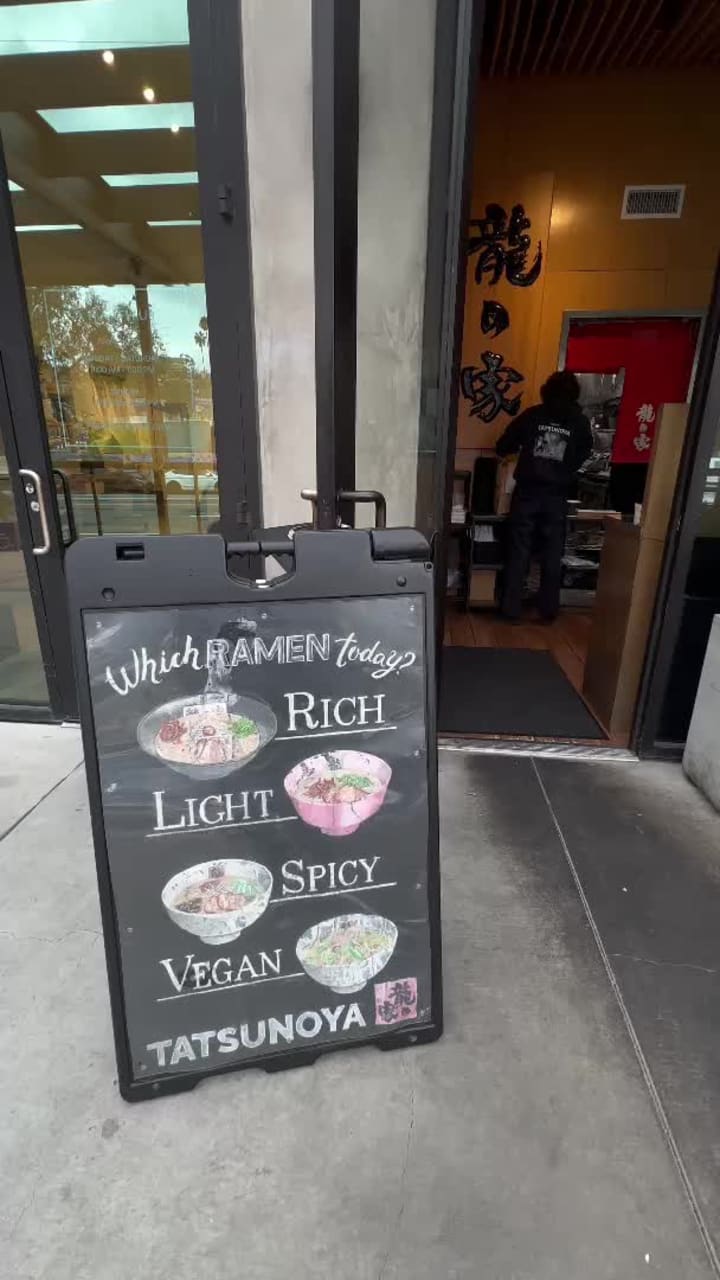 Which RAMEN today?
RICH
LIGHT
SPICY
VEGAN
TATSUNOYA
龍の家
龍の家
龍の家
TATSUNOYA